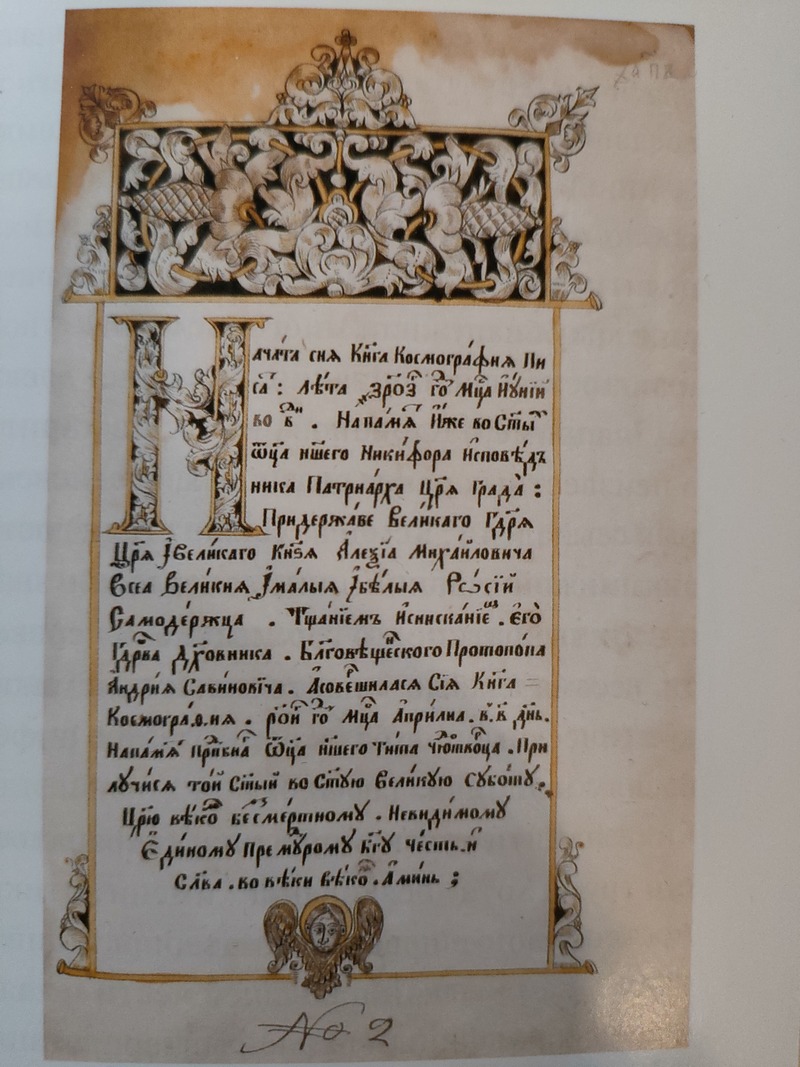 Начата сия Книга Космография Пи
са: Лѣта ҂зро҃з го Мц҃а Иѹнїи
во в҃ . На памѧ Иже во Ст҃ы
Ѿц҃а нш҃его Никифора Исповѣд
ника Патриарха Цр҃ѧ града :
При державе Великаго Гдр҃ѧ
Цр҃ѧ и великаго Кнз҃ѧ Алеѯїа Михаиловича
Всеа Великиѧ и малыѧ и бѣлыѧ Рѡсїи
Самодержца . Тщанїемъ и снисканїе . его
Гдр҃ва Дх҃овника . Блг҃овѣщеского Протопопа
Андриѧ Савиновича . А совершиласѧ Сїѧ Книга
Космография . ро҃и го Мц҃а Априлиа . в҃.в дн҃ь.
На памѧ прп҃бна Ѿц҃а нш҃его Тита чюткоца . При
лучисѧ той ст҃ый во Ст҃ую Великую Субботу.
Цр҃ю вѣко бесмертному . Невидимому
Единому Премрому Бг҃у Честь и
Слава . во вѣки вѣко . Аминь ;
No 2